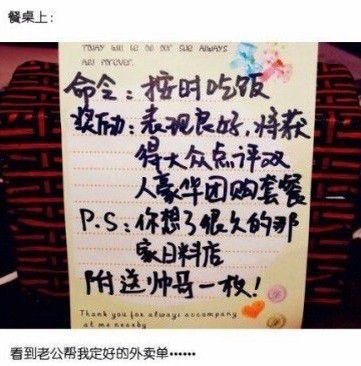 餐桌上：
TODAY WILL BE
ALWAYS
FOREVER.
命令：按时吃饭
奖励：表现良好，将获
得大众点评双
人豪华团购套餐
P.S：你想了很久的那
家日料店
附送帅哥一枚！
Thank you for always accompany
at me nearby
看到老公帮我定好的外卖单······